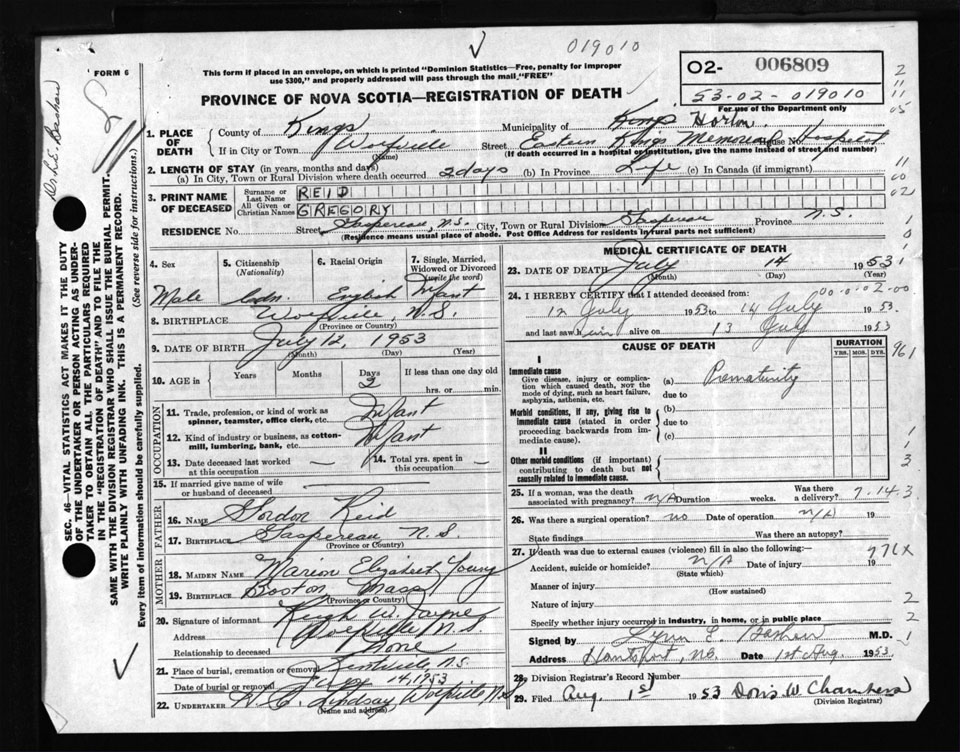 019010
FORM 6
This form if placed in an envelope, on which is printed "Dominion Statistics—Free, penalty for improper
use $300," and properly addressed will pass through the mail, "FREE"
O2- 006809
53-02-019010
For use of the Department only
PROVINCE OF NOVA SCOTIA—REGISTRATION OF DEATH
1. PLACE OF DEATH
County of Kings
Municipality of Kings Horton
If in City or Town Wolfville
(Name)
Street Eastern Kings Memorial House No. Hospital
(If death occurred in a hospital or institution, give the name instead of street and number)
2. LENGTH OF STAY (in years, months and days)
(a) In City, Town or Rural Division where death occurred 2 days (b) In Province Life (c) In Canada (if immigrant)
3. PRINT NAME OF DECEASED
Surname or Last Name REID
All Given or Christian Names GREGORY
RESIDENCE No. Street Gaspereau, N.S. City, Town or Rural Division Gaspereau Province N.S.
(Residence means usual place of abode. Post Office Address for residents by rural parts not sufficient)
4. Sex
5. Citizenship (Nationality)
6. Racial Origin
7. Single, Married, Widowed or Divorced (write the word)
Male Cadn. English Infant
8. BIRTHPLACE Wolfville, N.S.
(Province or Country)
9. DATE OF BIRTH July 12, 1953
(Month) (Day) (Year)
10. AGE in Years Months Days 2 If less than one day old
hrs. or min.
OCCUPATION
11. Trade, profession, or kind of work as spinner, teamster, office clerk, etc. Infant
12. Kind of industry or business, as cotton-mill, lumbering, bank, etc. Infant
13. Date deceased last worked at this occupation —
14. Total yrs. spent in this occupation —
15. If married give name of wife or husband of deceased —
FATHER
16. NAME Gordon Reid
17. BIRTHPLACE Gaspereau N.S.
(Province or Country)
MOTHER
18. MAIDEN NAME Marion Elizabeth Young
19. BIRTHPLACE Boston Mass
(Province or Country)
20. Signature of informant
Address Wolfville N.S.
Relationship to deceased None
21. Place of burial, cremation or removal Kentville N.S.
Date of burial or removal 14, 1953
22. UNDERTAKER Lindsay, Wolfville N.S.
(Name and address)
MEDICAL CERTIFICATE OF DEATH
23. DATE OF DEATH July 14 1953
(Month) (Day) (Year)
24. I HEREBY CERTIFY that I attended deceased from:
12 July 1953 to 14 July 1953
and last saw him alive on 13 July 1953
CAUSE OF DEATH
DURATION
YRS. MOS. DYS.
I
Immediate cause
Give disease, injury or complication which caused death, NOT the mode of dying, such as heart failure, asphyxia, asthenia, etc.
(a) Prematurity
due to
Morbid conditions, if any, giving rise to immediate cause (stated in order proceeding backwards from immediate cause).
(b)
due to
(c)
II
Other morbid conditions (if important) contributing to death but not causally related to immediate cause.
25. If a woman, was the death associated with pregnancy? N/A Duration weeks. Was there a delivery?
7-14-3
26. Was there a surgical operation? no Date of operation N/A 19
State findings Was there an autopsy?
27. If death was due to external causes (violence) fill in also the following:—
776x
Accident, suicide or homicide? N/A Date of injury 19
(State which)
Manner of injury
(How sustained)
Nature of injury
Specify whether injury occurred in industry, in home, or in public place
Signed by Lynn E. M.D.
Address Hantsport, NS. Date 1st Aug. 1953
28. Division Registrar's Record Number
29. Filed Aug. 1st 1953 Doris W Chambers
(Division Registrar)
SEC. 46—VITAL STATISTICS ACT MAKES IT THE DUTY
OF THE UNDERTAKER OR PERSON ACTING AS UNDER-
TAKER TO OBTAIN ALL THE PARTICULARS REQUIRED
IN THE "REGISTRATION OF DEATH" AND TO FILE THE
SAME WITH THE DIVISION REGISTRAR WHO SHALL ISSUE THE BURIAL PERMIT.
WRITE PLAINLY WITH UNFADING INK. THIS IS A PERMANENT RECORD.
Every item of information should be carefully supplied. (See reverse side for instructions.)